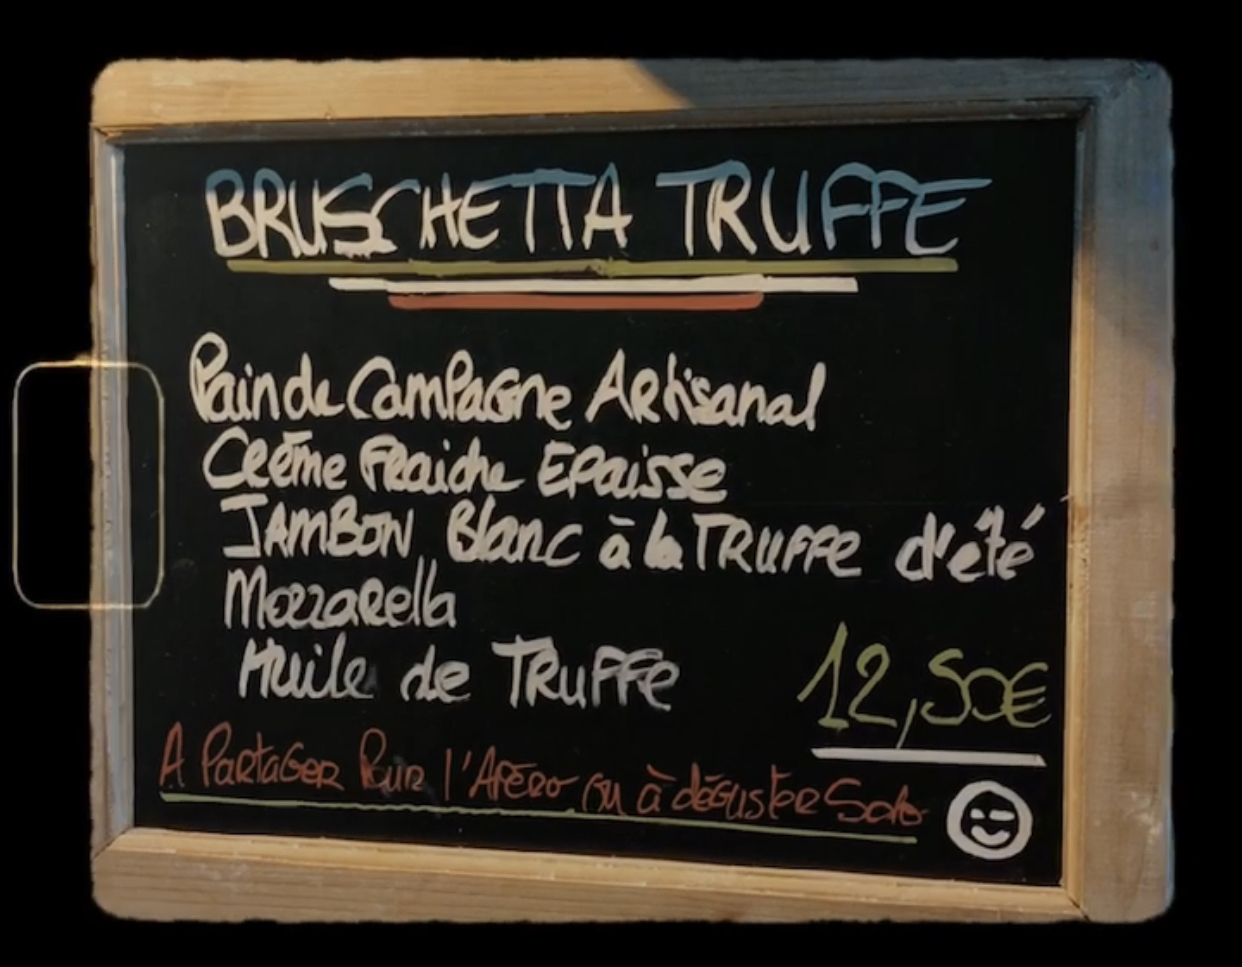 BRUSCHETTA TRUFFE
Pain de Campagne Artisanal
Crème Fraiche Epaisse
JAMBON Blanc à la TRUFFE d'été
Mozzarella
Huile de TRUFFe
A Partager Pour l'Apéro ou à déguster Solo
12,50€